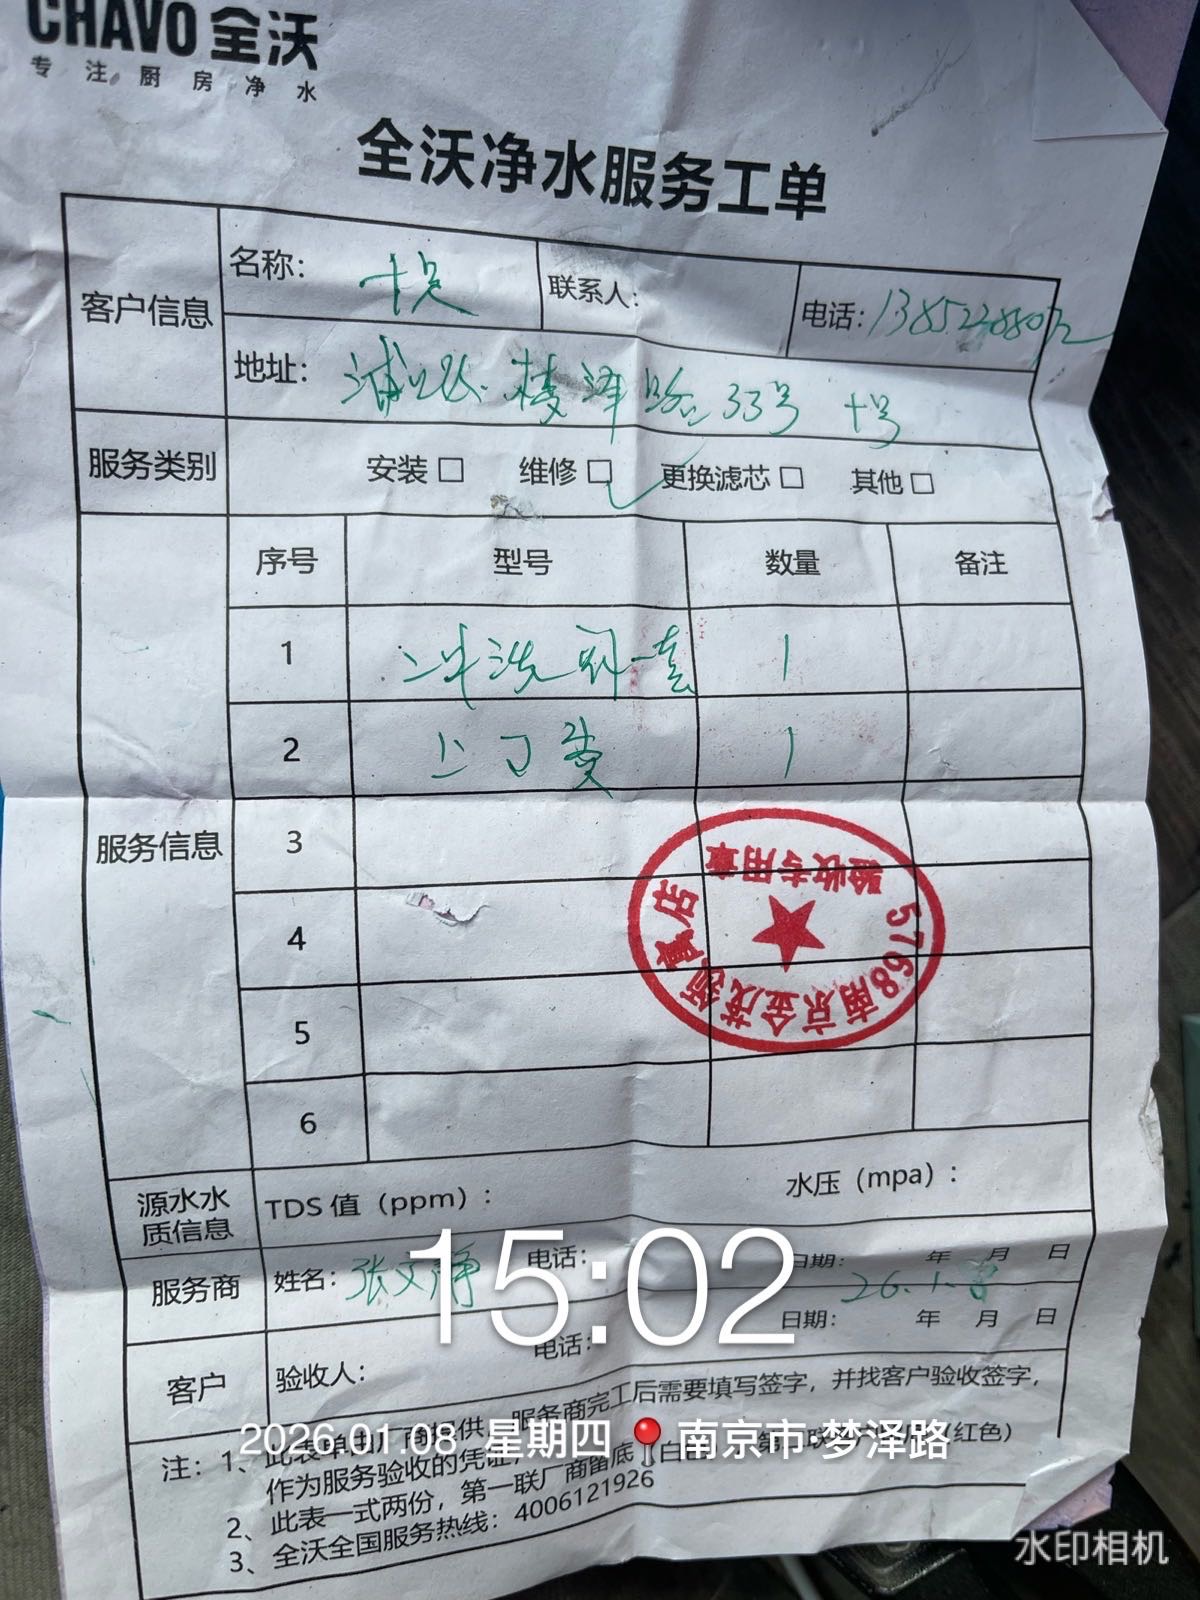 CHAVO 全沃
专注厨房净水
全沃净水服务工单
客户信息
名称:
联系人:
电话:
地址: 路33号
服务类别
安装 □ 维修 □ 更换滤芯 □ 其他 □
服务信息
序号 型号 数量 备注
1 冲洗阀一套 1
2 上门费 1
3
4
5
6
验收专用章
5768南京金茂领真店
源水水质信息
TDS 值（ppm）:
水压（mpa）:
服务商
姓名: 张文静
电话:
日期: 年 月 日
26.1.
客户
验收人:
电话:
日期: 年 月 日
注: 1、此表单由厂商提供，服务商完工后需要填写签字，并找客户验收签字，
作为服务验收的凭证
2、此表一式两份，第一联厂商留底（白色） (红色)
3、全沃全国服务热线: 4006121926
15:02
2026.01.08 星期四 南京市·梦泽路
水印相机